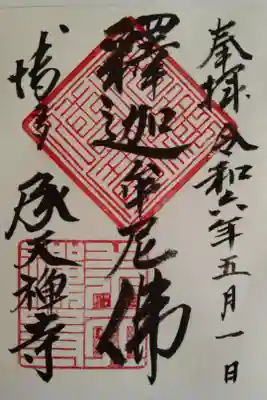 奉拝 令和六年五月一日
釋迦牟尼佛
博多
承天禅寺